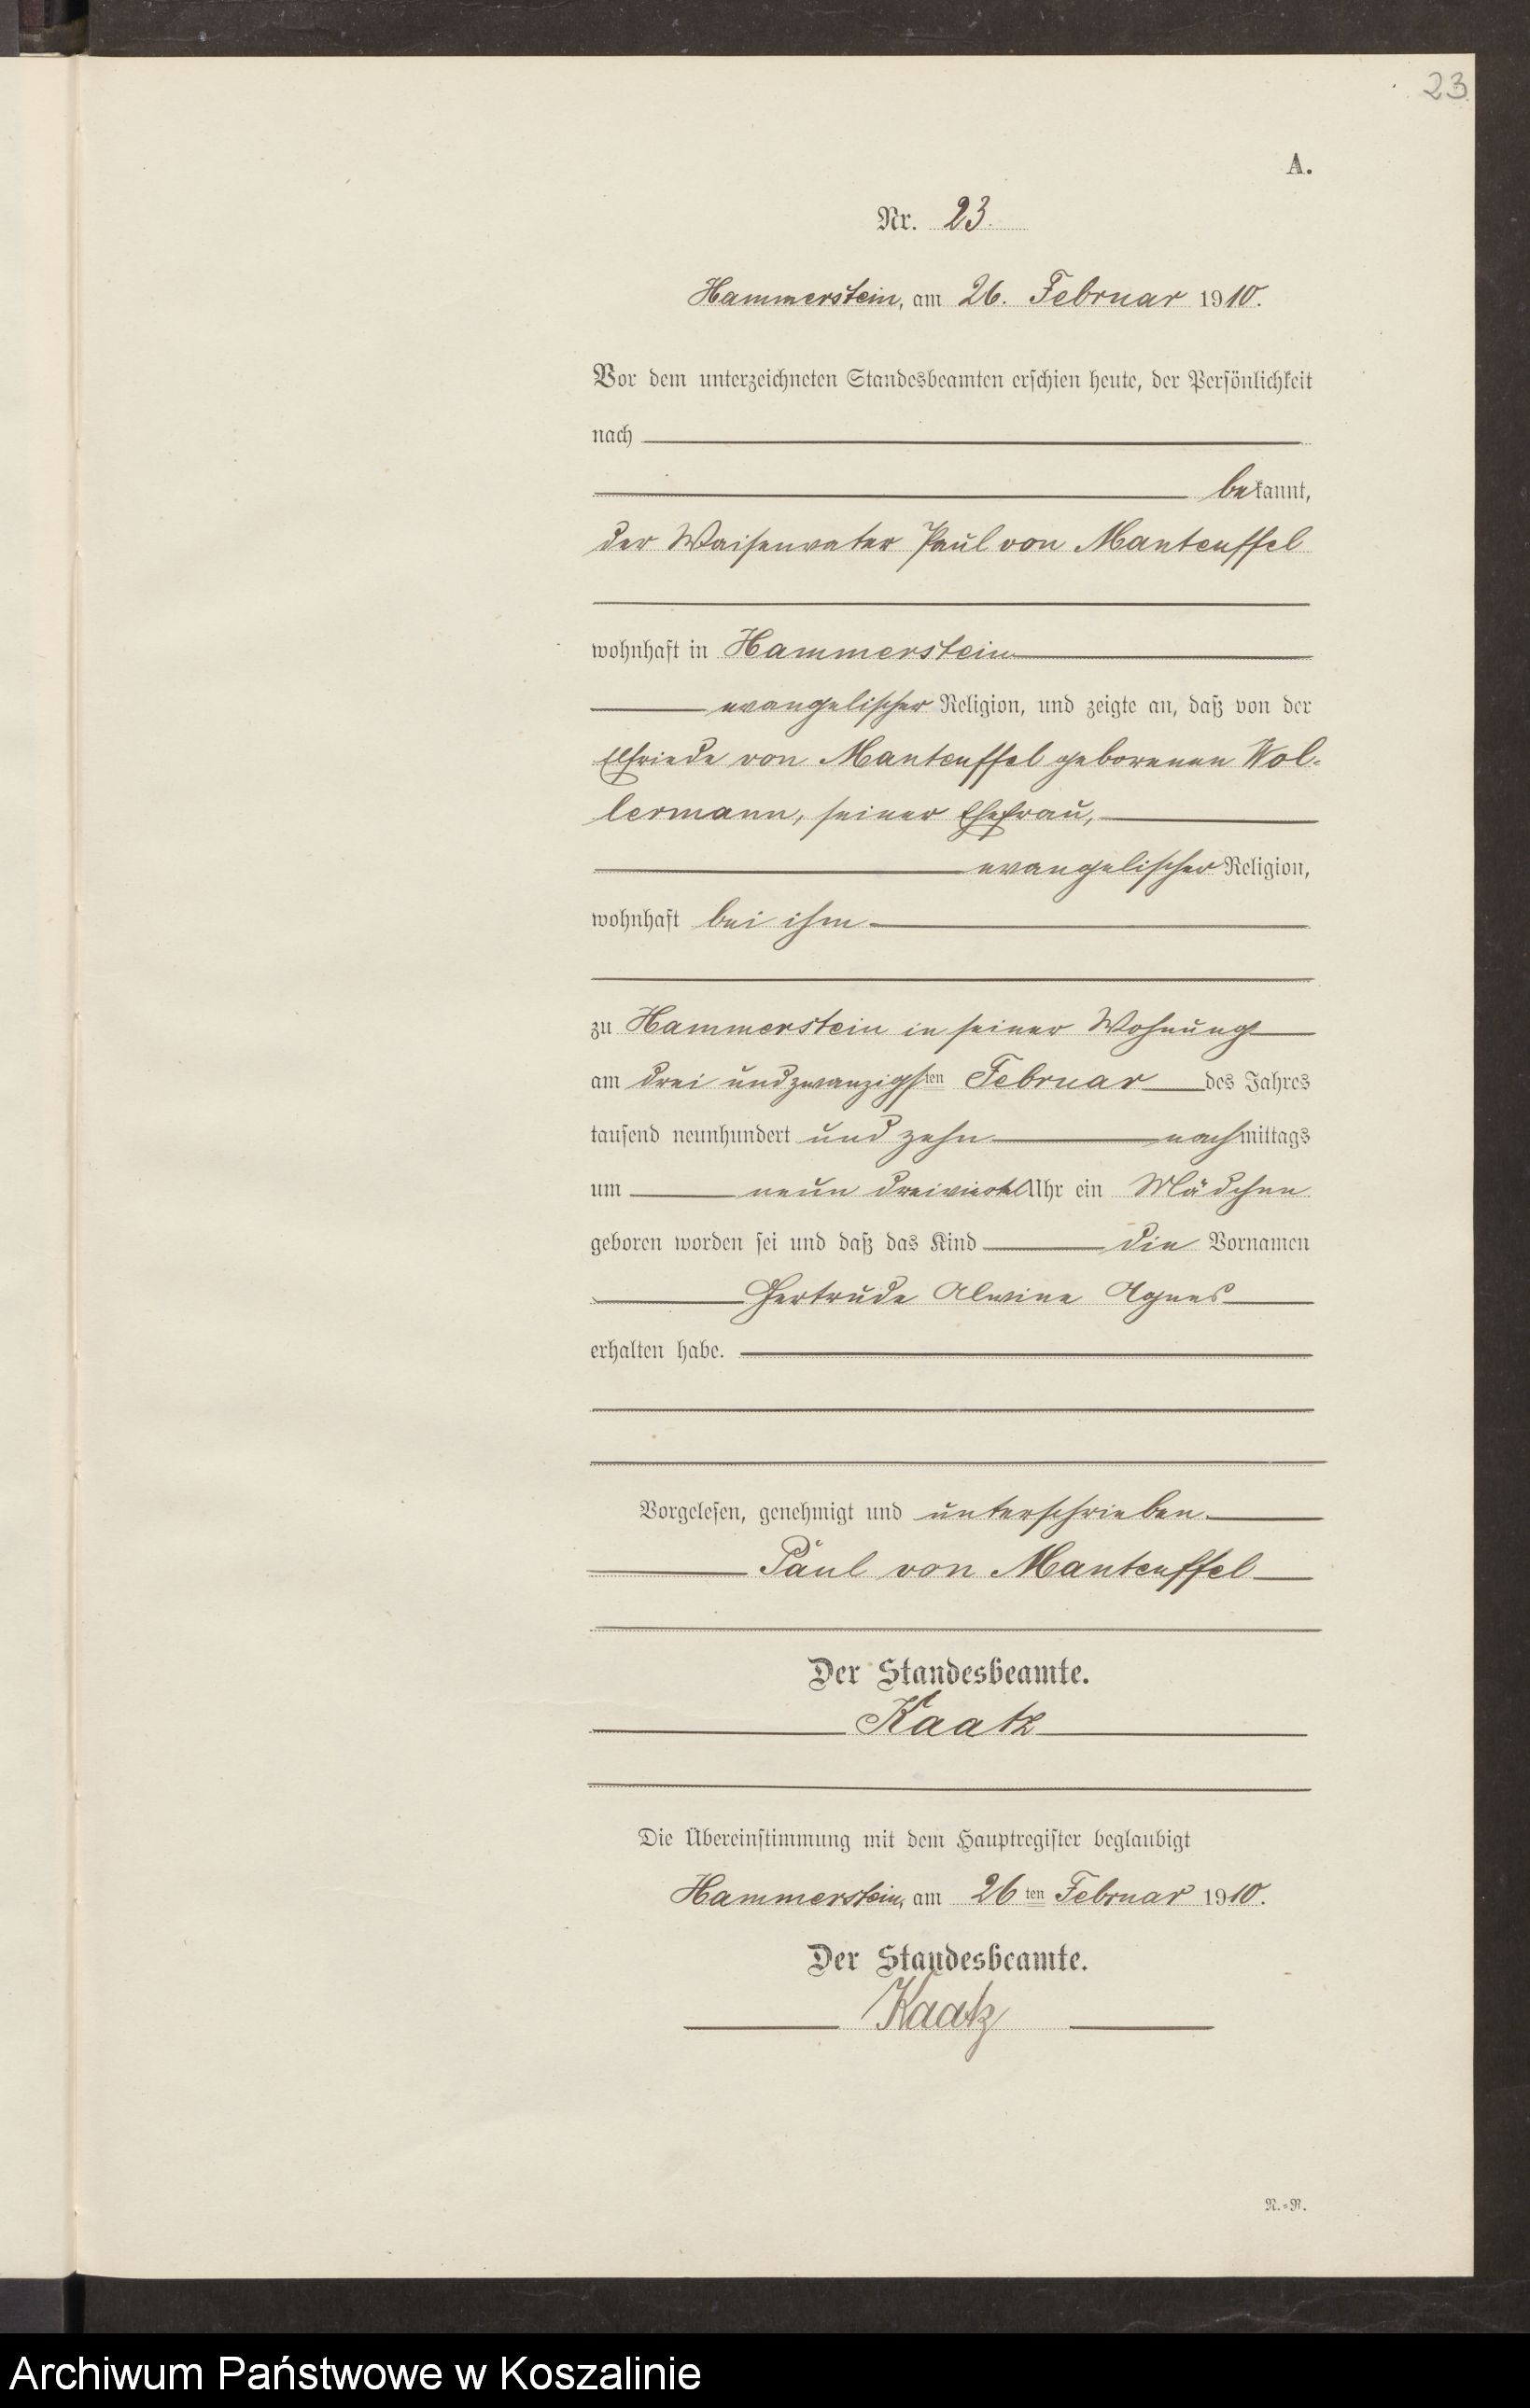 23
A.
Nr. 23.
Hammerstein, am 26. Februar 1910.
Vor dem unterzeichneten Standesbeamten erschien heute, der Persönlichkeit
nach
bekannt,
der Waisenvater Paul von Manteuffel
wohnhaft in Hammerstein
evangelischer Religion, und zeigte an, daß von der
Elfriede von Manteuffel geborenen Wol-
lermann, seiner Ehefrau,
evangelischer Religion,
wohnhaft bei ihm
zu Hammerstein in seiner Wohnung
am drei und zwanzigsten Februar des Jahres
tausend neunhundert und zehn nachmittags
um neun dreiviertel Uhr ein Mädchen
geboren worden sei und daß das Kind die Vornamen
Gertrude Alwine Agnes
erhalten habe.
Vorgelesen, genehmigt und unterschrieben.
Paul von Manteuffel
Der Standesbeamte.
Kaatz
Die Übereinstimmung mit dem Hauptregister beglaubigt
Hammerstein, am 26ten Februar 1910.
Der Standesbeamte.
Kaatz
N.=R.
Archiwum Państwowe w Koszalinie